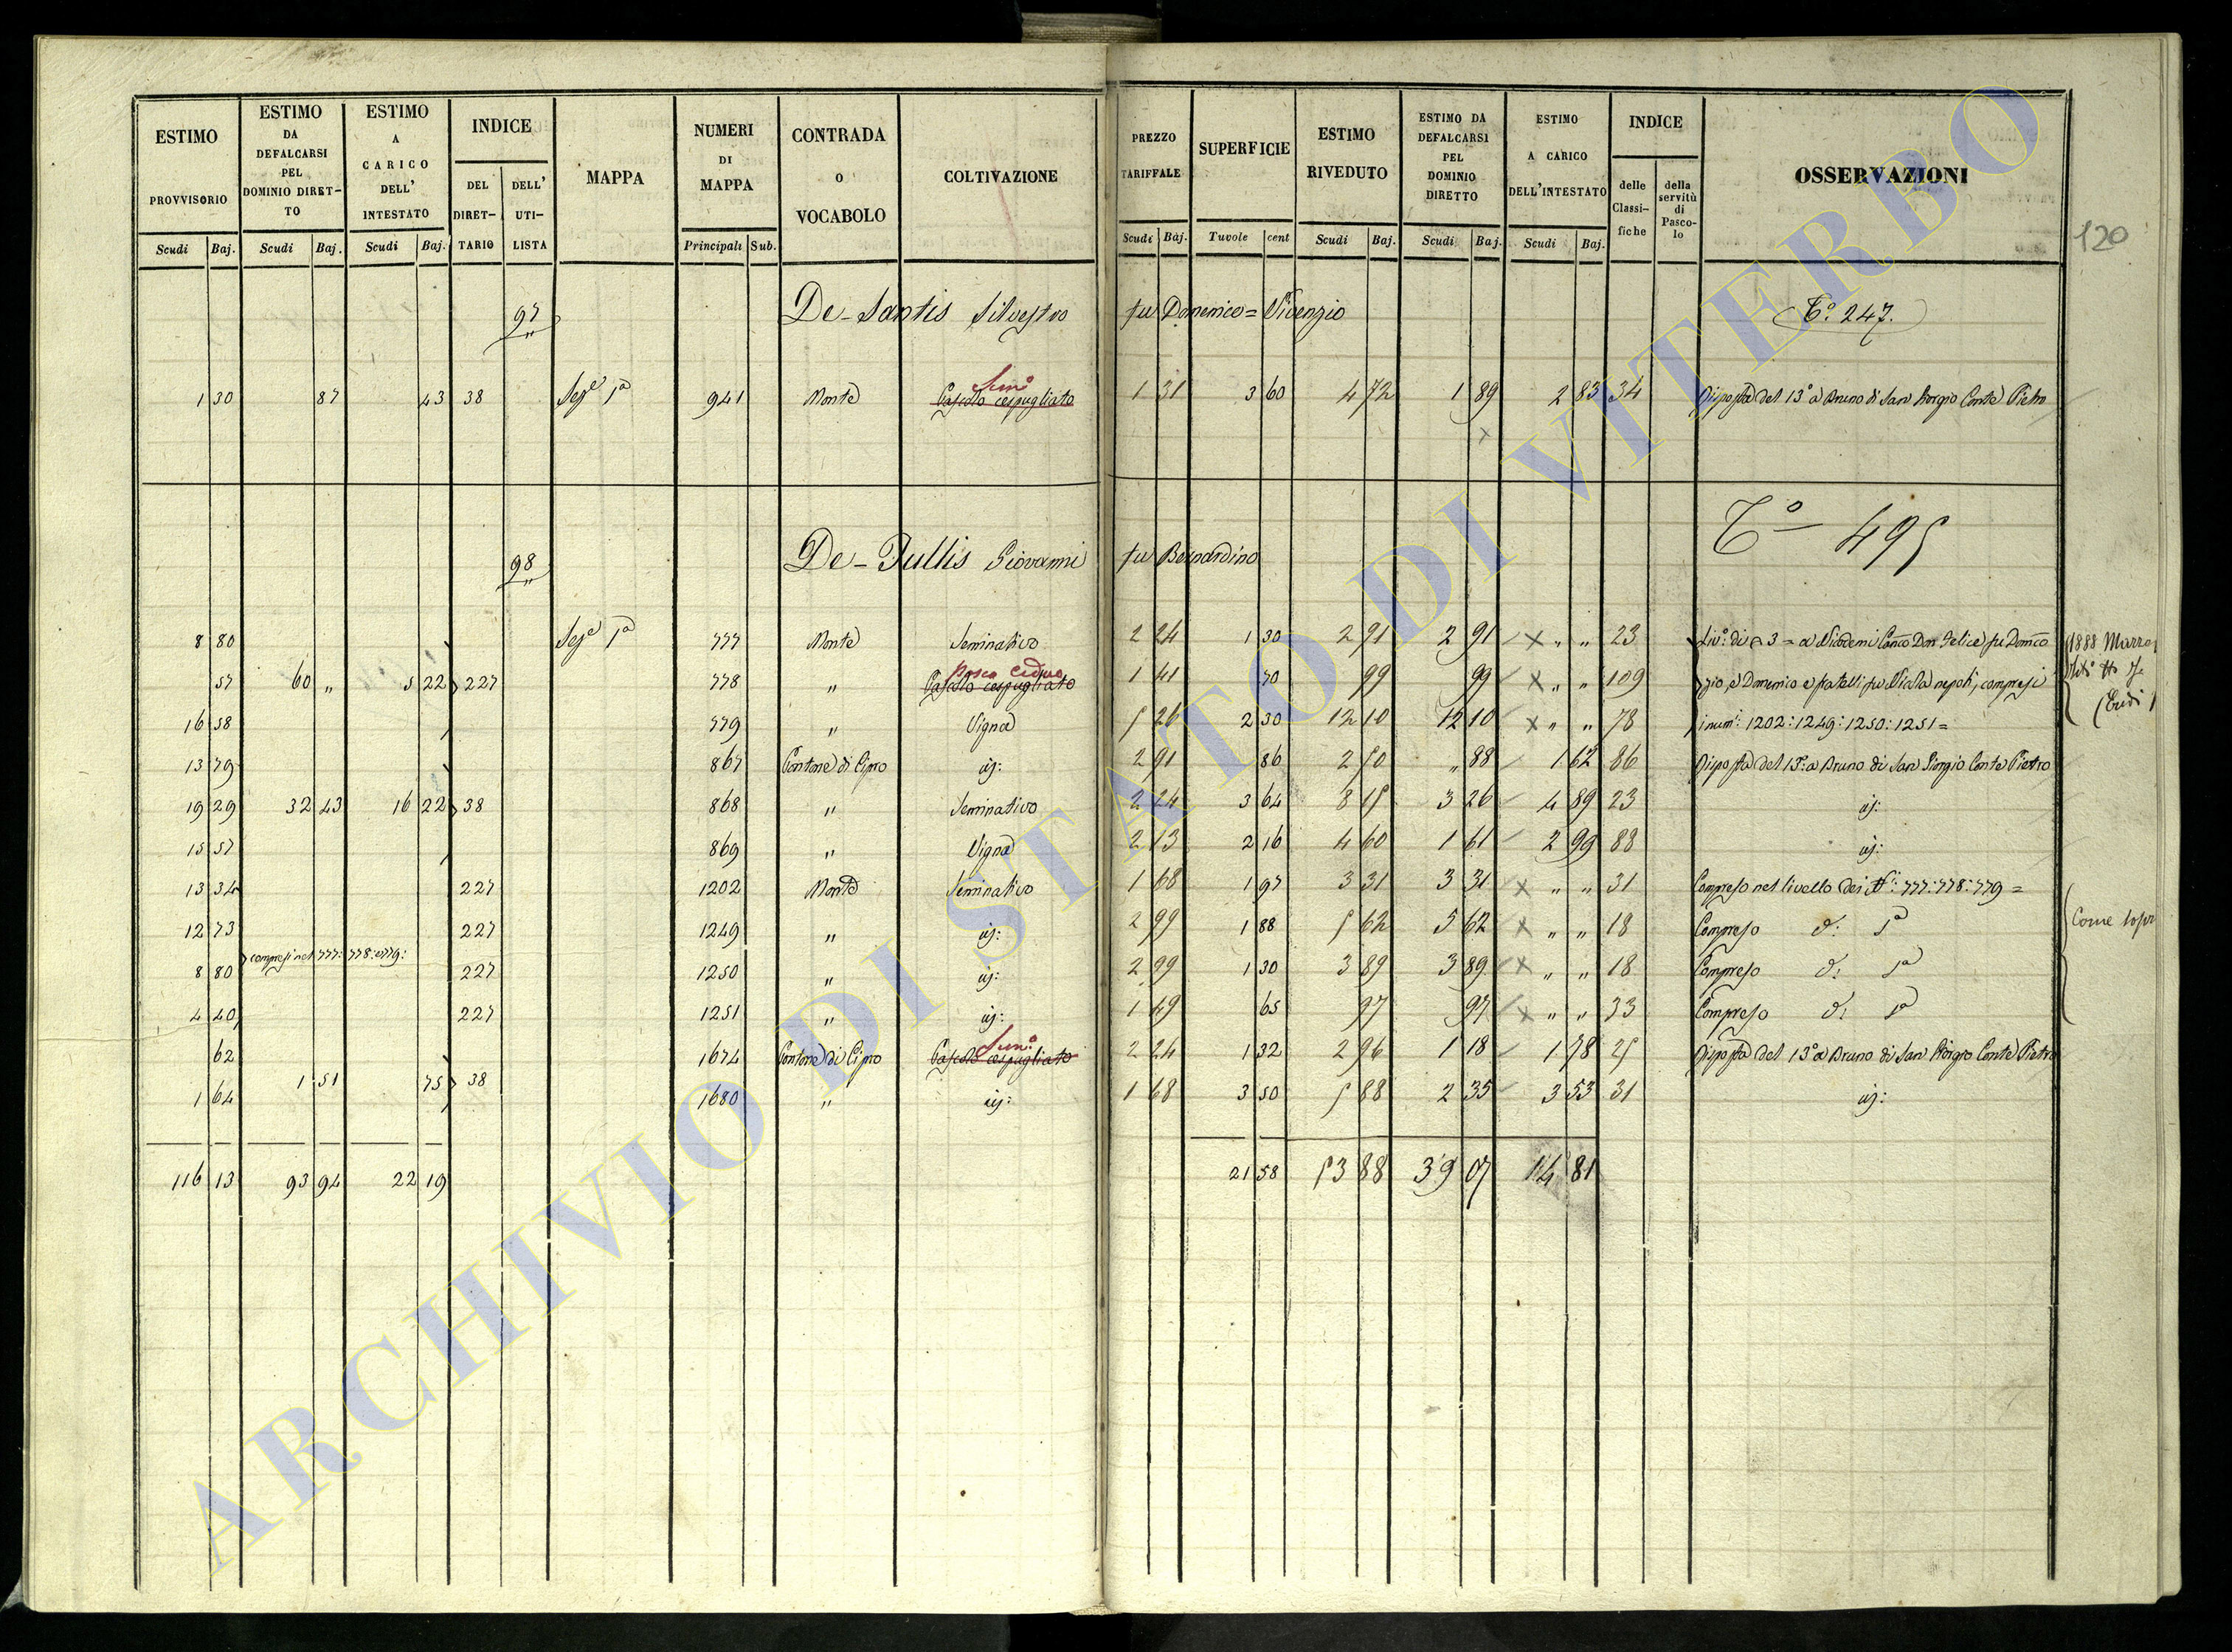 ESTIMO PROVVISORIO Scudi Baj.
ESTIMO DA DEFALCARSI PEL DOMINIO DIRETTO Scudi Baj.
ESTIMO A CARICO DELL' INTESTATO Scudi Baj.
INDICE DEL DIRETTARIO DELL' UTILISTA
MAPPA
NUMERI DI MAPPA Principali Sub.
CONTRADA O VOCABOLO
COLTIVAZIONE
PREZZO TARIFFALE Scudi Baj.
SUPERFICIE Tavole cent
ESTIMO RIVEDUTO Scudi Baj.
ESTIMO DA DEFALCARSI PEL DOMINIO DIRETTO Scudi Baj.
ESTIMO A CARICO DELL'INTESTATO Scudi Baj.
INDICE delle Classifiche della servitù di Pascolo
OSSERVAZIONI
120
97 De-Santis Silvestro fu Domenico = Vivenzio Tº. 247.
1 30 87 43 38 Seze 1ª 941 Monte Pascolo cespugliato Semº 1 31 3 60 4 72 1 89 2 83 34 Risposta del 13º a Bruno di San Giorgio Conte Pietro
x
98 De-Tullis Giovanni fu Bernardino Tº 495
8 80 Seze 1ª 777 Monte Seminativo 2 24 1 30 2 91 2 91 x " " 23 Livº: di 3 = a Nicodemi Canco Don Felice fu Domco
57 60 " 5 22 227 778 " Pascolo cespugliato Bosco Ceduo 1 41 70 99 99 x " " 109 zio, e Domenico e fratelli fu Nicola nepoti, compresi
16 58 779 " Vigna 5 26 2 30 12 10 12 10 x " " 78 i numi: 1202:1249:1250:1251 =
1888 Marzo
13 79 867 Cantone di Cipro id: 2 91 86 2 50 " 88 1 62 86 Risposta del 13º: a Bruno di San Giorgio Conte Pietro
19 29 32 43 16 22 38 868 " Seminativo 2 24 3 64 8 15 3 26 4 89 23 id:
15 57 869 " Vigna 2 13 2 16 4 60 1 61 2 99 88 id:
13 34 227 1202 Monte Seminativo 1 68 1 97 3 31 3 31 x " " 31 Compreso nel livello dei Ni: 777:778:779 =
12 73 227 1249 " id: 2 99 1 88 5 62 5 62 x " " 18 Compreso d: 1ª
Come sopr
compresi nel 777: 778: e 779:
8 80 227 1250 " id: 2 99 1 30 3 89 3 89 x " " 18 Compreso d: 1ª
4 40 227 1251 " id: 1 49 65 97 97 x " " 33 Compreso d: 1ª
62 1674 Cantone di Cipro Pascolo cespugliato Semº 2 24 1 32 2 96 1 18 1 78 25 Risposta del 13º a Bruno di San Giorgio Conte Pietro
1 51 75 38
1 64 1680 " id: 1 68 3 50 5 88 2 35 3 53 31 id:
116 13 93 94 22 19 21 58 53 88 39 07 14 81
ARCHIVIO DI STATO DI VITERBO